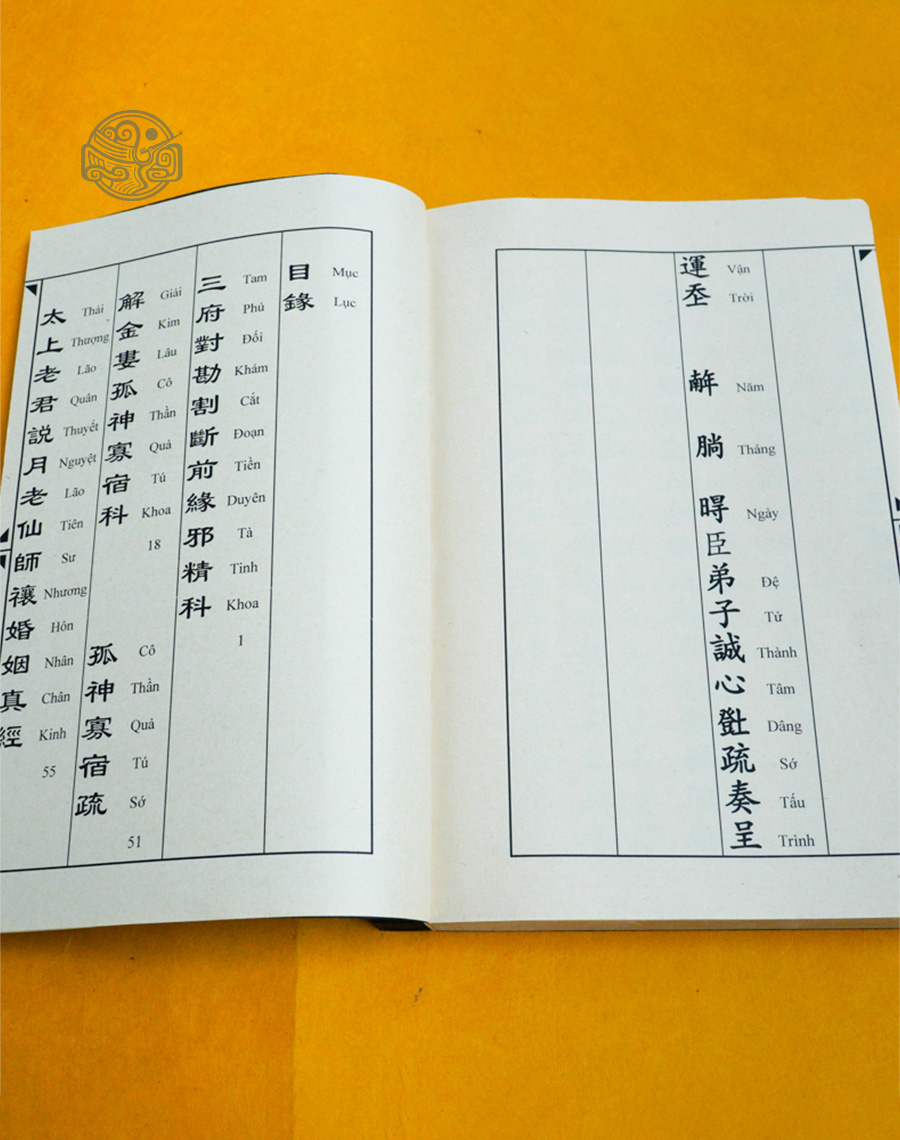 運𡗶 𢆥 𣎃 𣈜臣弟子誠心𤼸疏奏呈
Vận Trời Năm Tháng Ngày Đệ Tử Thành Tâm Dâng Sớ Tấu Trình
目錄
Mục Lục
三府對勘割斷前緣邪精科
Tam Phủ Đối Khám Cắt Đoạn Tiền Duyên Tà Tinh Khoa 1
解金婁孤神寡宿科
Giải Kim Lâu Cô Thần Quả Tú Khoa 18
孤神寡宿疏
Cô Thần Quả Tú Sớ 51
太上老君説月老仙師禳婚姻真經
Thái Thượng Lão Quân Thuyết Nguyệt Lão Tiên Sư Nhương Hôn Nhân Chân Kinh 55